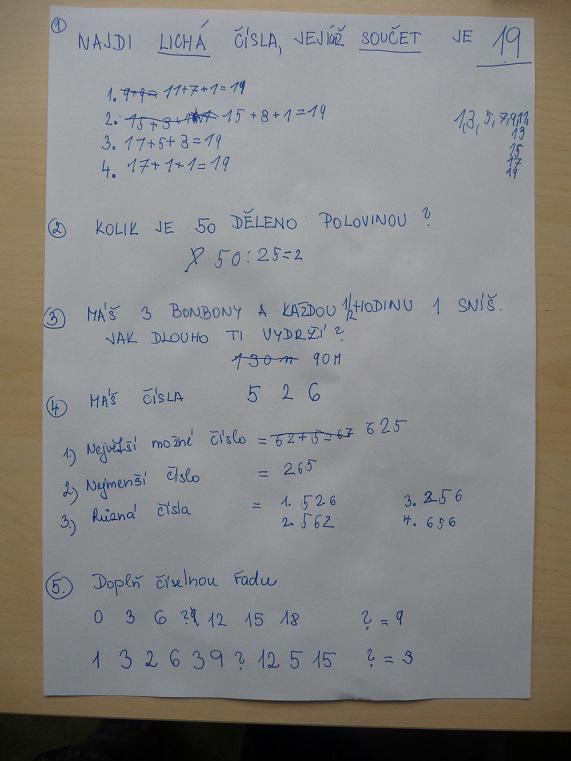 ① NAJDI LICHÁ ČÍSLA, JEJIŽ SOUČET JE 19
1. 9+9= 11+7+1=19
2. 15+3+1 15+3+1=19
3. 11+5+3=19
4. 17+1+1=19
1,3, 5, 7,9,11,
13
15
17
19
② KOLIK JE 50 DĚLENO POLOVINOU ?
50:25=2
③ MÁŠ 3 BONBONY A KAŽDOU 1/2 HODINU 1 SNÍŠ.
JAK DLOUHO TI VYDRŽÍ ?
130 m 90M
④ MÁŠ ČÍSLA 5 2 6
1.) Největší možné číslo = 62+5=67 625
2.) Nejmenší číslo = 265
3.) Různá čísla = 1. 526 3. 256
2. 562 4. 656
5. Doplň číselnou řadu
0 3 6 ?9 12 15 18 ? = 9
1 3 2 6 3 9 ? 12 5 15 ? = 3